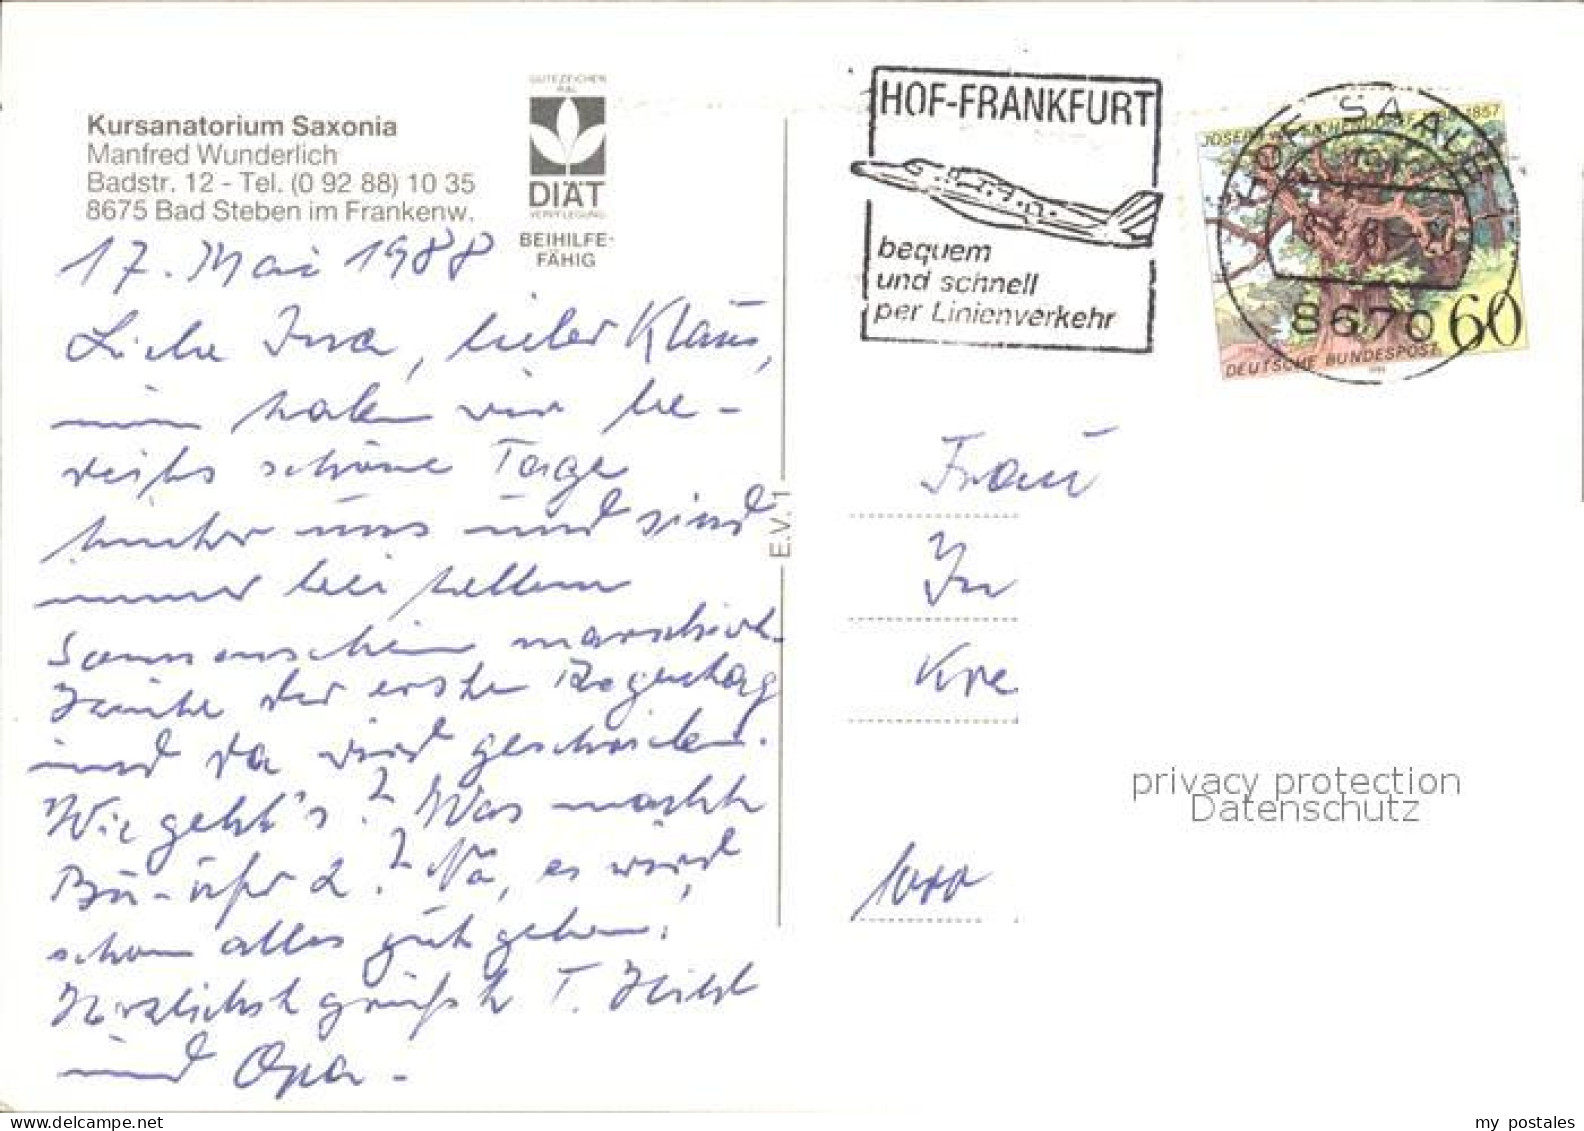 Kursanatorium Saxonia
Manfred Wunderlich
Badstr. 12 - Tel. (0 92 88) 10 35
8675 Bad Steben im Frankenw.
GÜTEZEICHEN
RAL
DIÄT
VERPFLEGUNG
BEIHILFE-
FÄHIG
17. Mai 1988
Liebe Ina, lieber Klaus,
nun haben wir be-
reits schöne Tage
hinter uns und sind
immer bei hellem
Sonnenschein marschiert.
Heute der erste Regentag
und da wird geschrieben.
Wie geht's? Was macht
? Na, es wird
schon alles gut gehen.
Herzlichst grüßt T.
und Opa -
E.V. 1
HOF-FRANKFURT
bequem
und schnell
per Linienverkehr
JOSEPH V. EICHENDORFF 1788-1857
HOF, SAALE
8670
60
DEUTSCHE BUNDESPOST
Frau
In
Kre
1000
privacy protection
Datenschutz
my postales